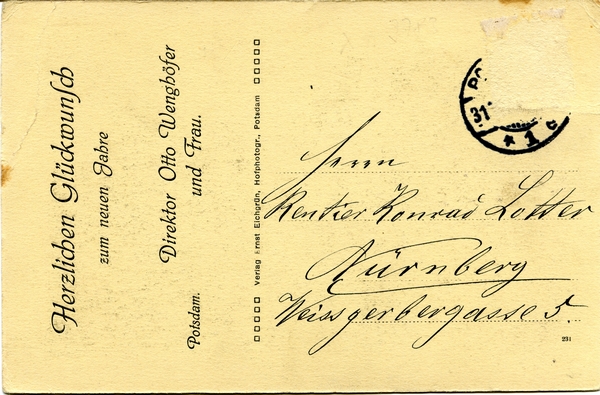 Herzlichen Glückwunsch
zum neuen Jahre
Direktor Otto Wenghöfer
und Frau.
Potsdam.
Verlag Ernst Eichgrün, Hofphotogr., Potsdam
PO
31.
* 1 c
Herrn
Rentier Konrad Lotter
Nürnberg
Weissgerbergasse 5.
231